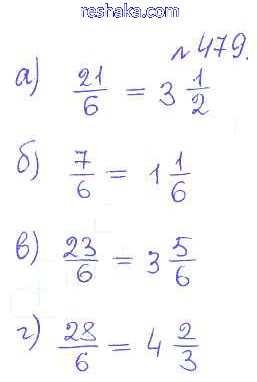 reshaka.com
№479.
а) 21/6 = 3 1/2
б) 7/6 = 1 1/6
в) 23/6 = 3 5/6
г) 28/6 = 4 2/3